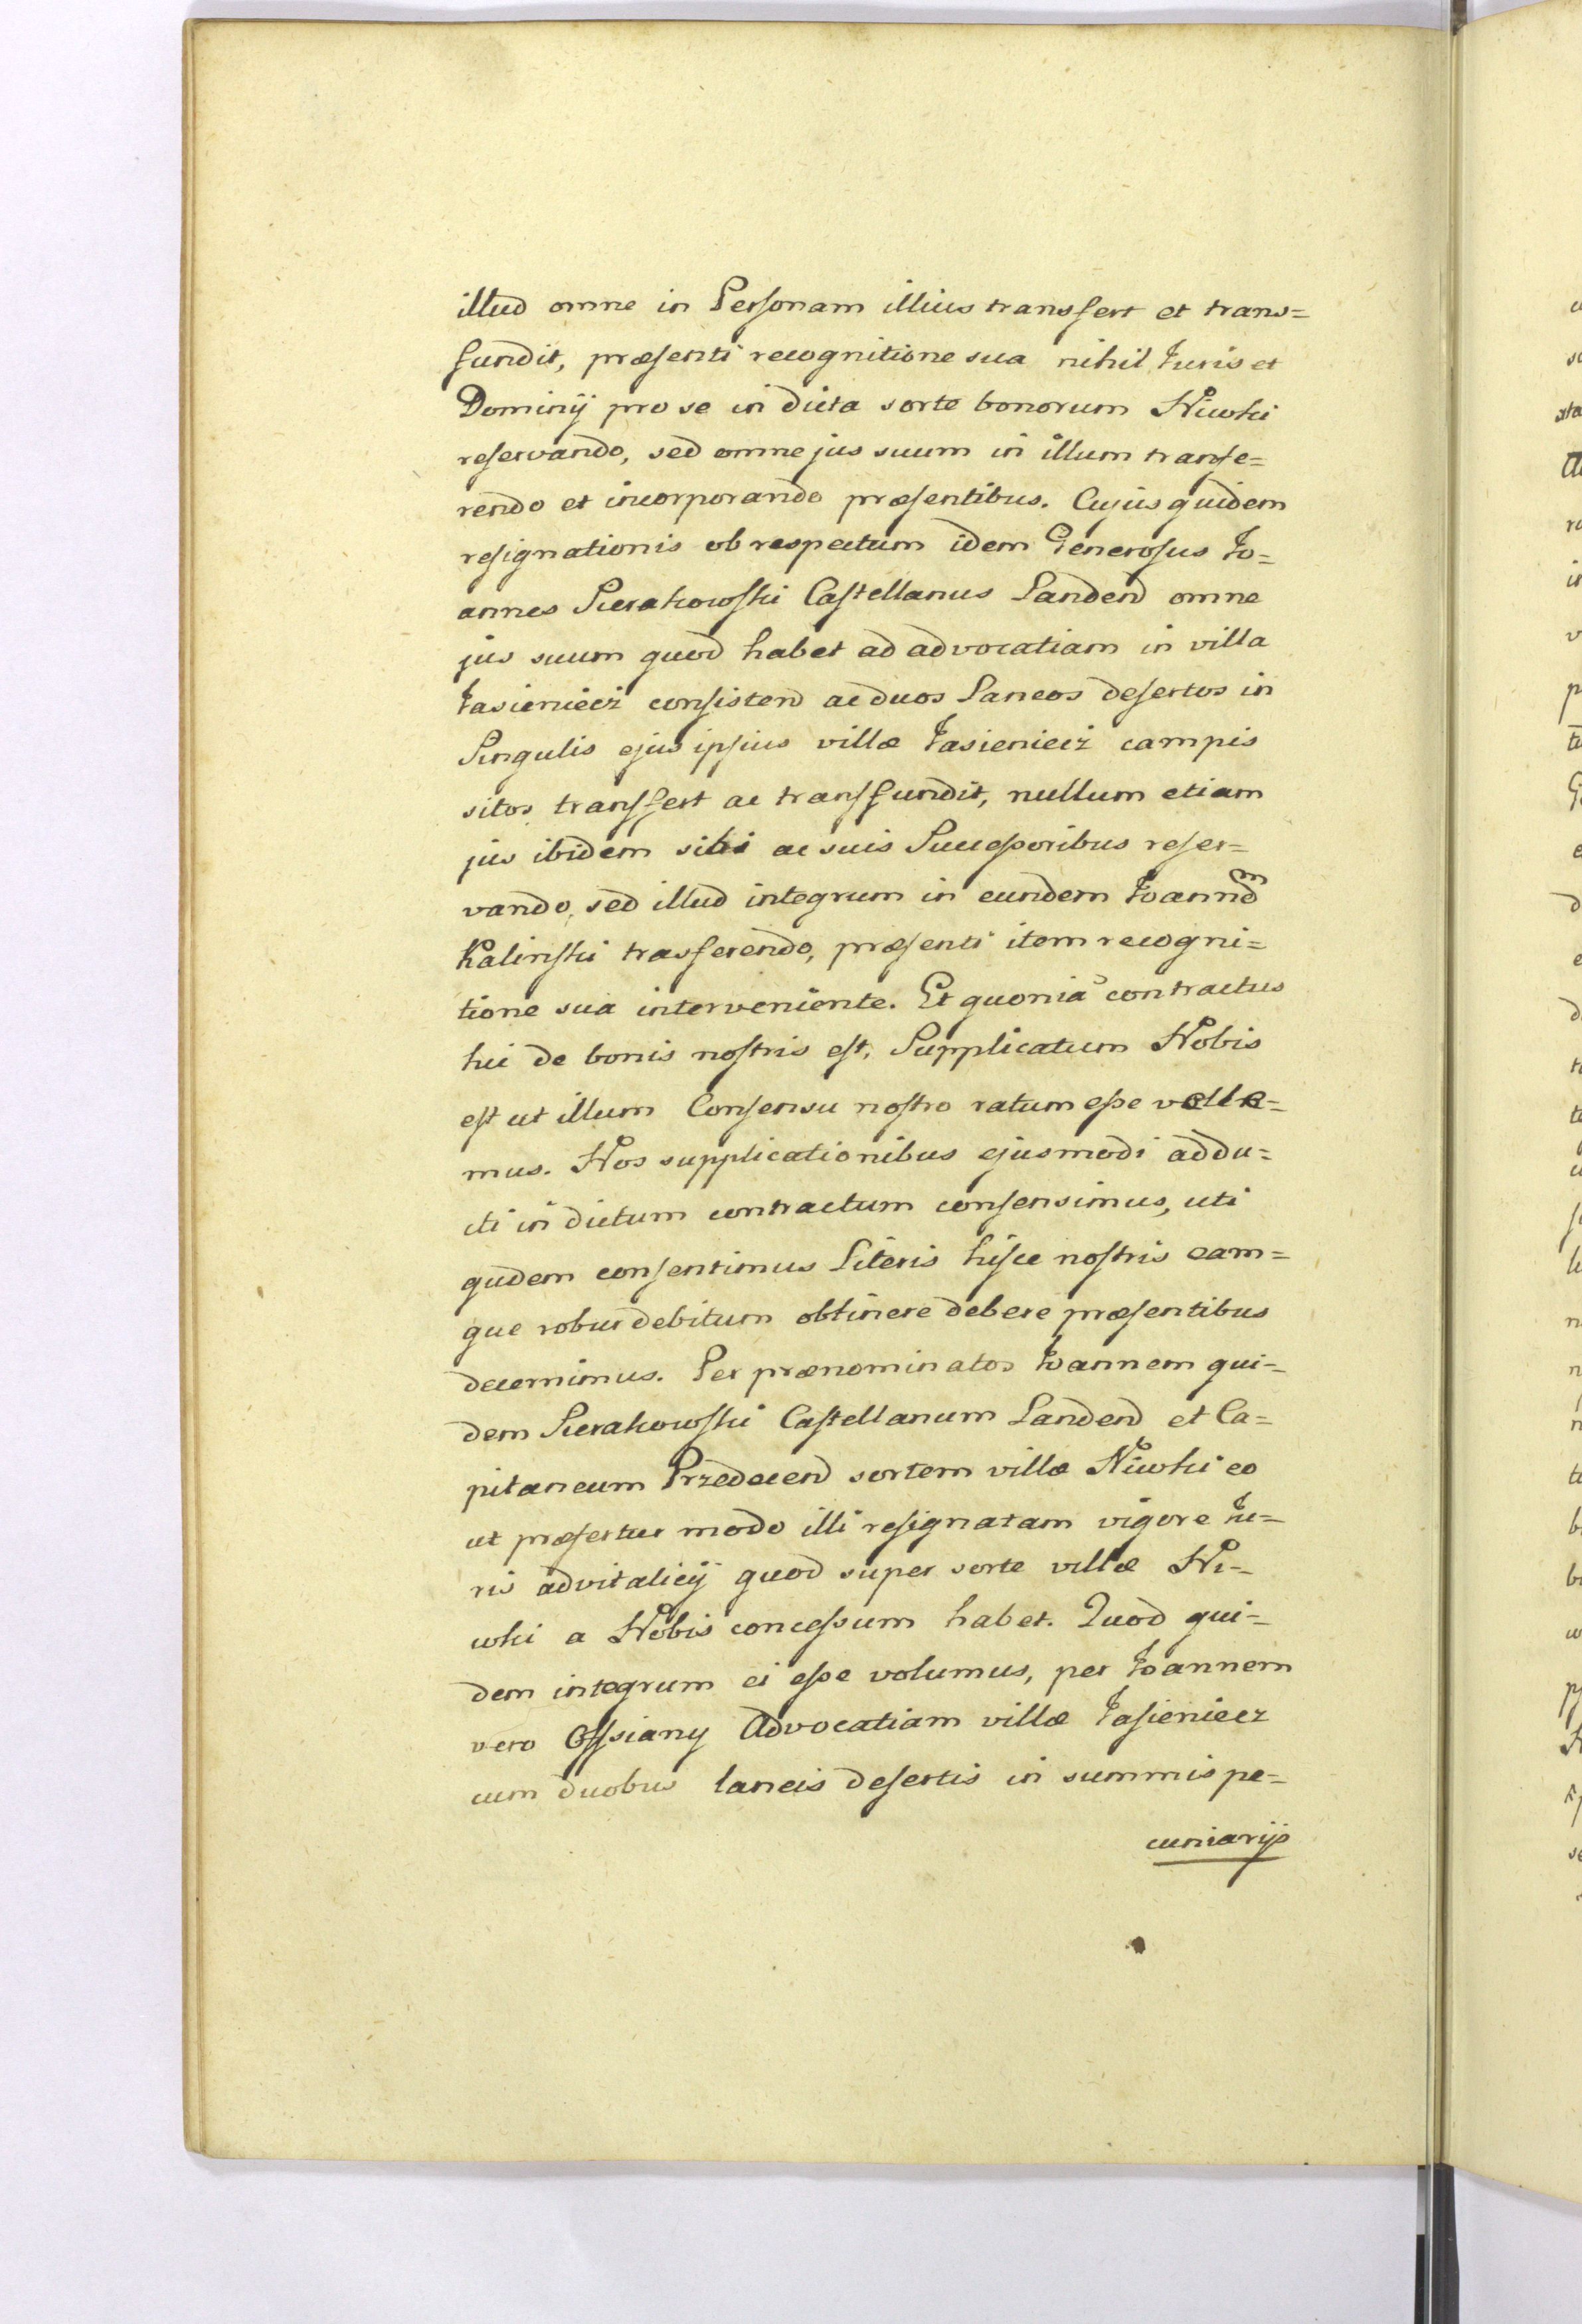 illud omne in Personam illius transfert et trans=
fundit, præsenti recognitione sua nihil Iuris et
Dominij pro se in dicta sorte bonorum Niwki
reservando, sed omne jus suum in illum transfe=
rendo et incorporando præsentibus. Cujus quidem
resignationis ob respectum idem Generosus Io=
annes Sierakowski Castellanus Landend omne
jus suum quod habet ad advocatiam in villa
Iasieniecz consistend ac duos Laneos desertos in
Singulis ejus ipsius villæ Iasieniecz campis
sitos transfert ac transfundit, nullum etiam
jus ibidem sibi ac suis Successoribus reser=
vando, sed illud integrum in eundem Ioannem
Kalinski trasferendo, præsenti item recogni=
tione sua interveniente. Et quoniã contractus
hic de bonis nostris est, Supplicatum Nobis
est ut illum Consensu nostro ratum esse velle=
mus. Nos supplicationibus ejusmodi addu=
cti in dictum contractum consensimus, uti
qudem consentimus Literis hisce nostris eam=
que robur debitum obtinere debere præsentibus
decernimus. Per prænominatos Ioannem qui=
dem Sierakowski Castellanum Landend et Ca=
pitaneum Przedecend sortem villæ Niwki eo
ut præfertur modo illi resignatam vigore Iu=
ris advitalicij quod super sorte villæ Ni=
wki a Nobis concessum habet. Quod qui=
dem integrum ei esse volumus, per Ioannem
vero Ossiany Advocatiam villæ Iasieniecz
cum duobus laneis desertis in summis pe=
cuniarijs